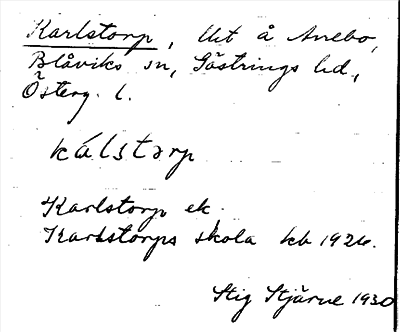 Karlstorp, Ut å Anebo,
Blåviks sn, Göstrings hd.,
Österg. l.
kálstorp
Karlstorp ek.
Karlstorps skola kb 1926.
Stig Stjärne 1930